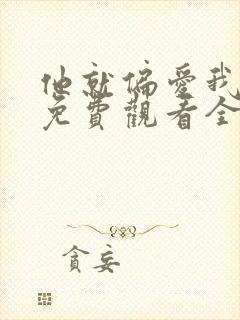 他就偏愛我
免費觀看全
貪妄